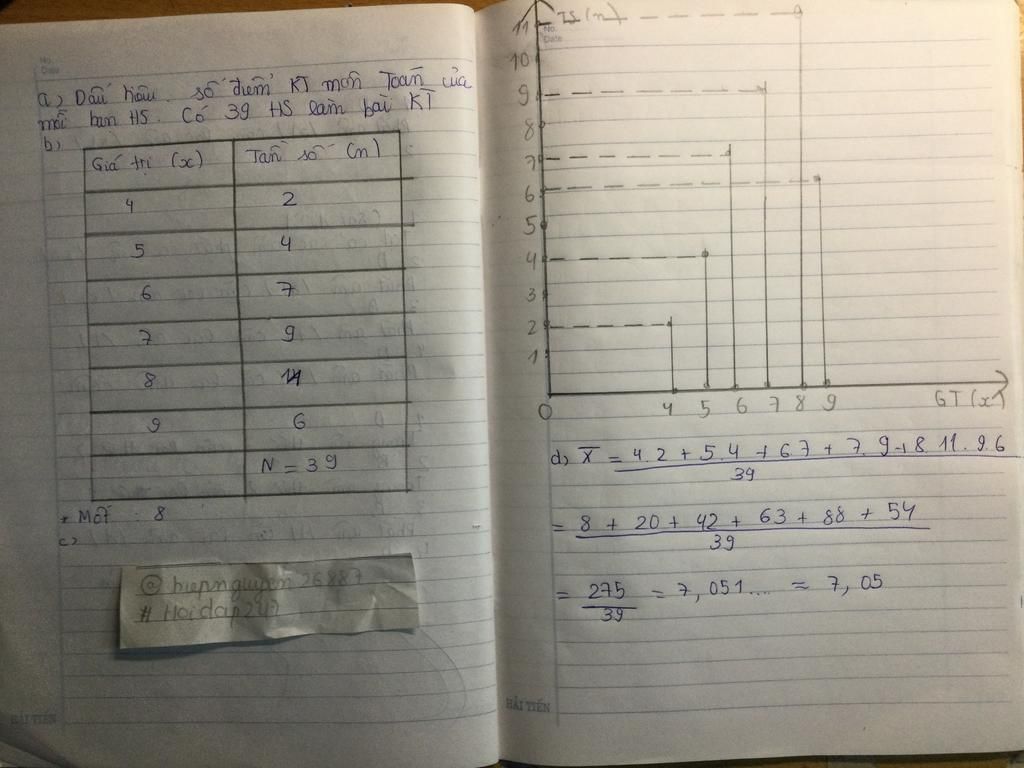 No.
Date
a) Dấu hiệu: số điểm KT môn Toán của
mỗi bạn HS. Có 39 HS làm bài KT
b)
Giá trị (x) Tần số (n)
4 2
5 4
6 7
7 9
8 11
9 6
N = 39
* Mốt : 8
c)
@hiepnguyen26887
# Hoidap247
HẢI TIẾN
TS (n)
No.
Date
11
10
9
8
7
6
5
4
3
2
1
0 4 5 6 7 8 9 GT (x)
d) X̄ = 4.2 + 5.4 + 6.7 + 7.9 + 8.11.9.6
39
= 8 + 20 + 42 + 63 + 88 + 54
39
= 275 = 7,051.... ≈ 7,05
39
HẢI TIẾN